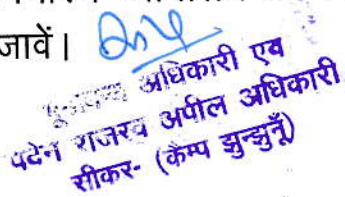 जावें।
अधिकारी एव
पदेन राजस्व अपील अधिकारी
सीकर- (कैम्प झुन्झुनूँ)